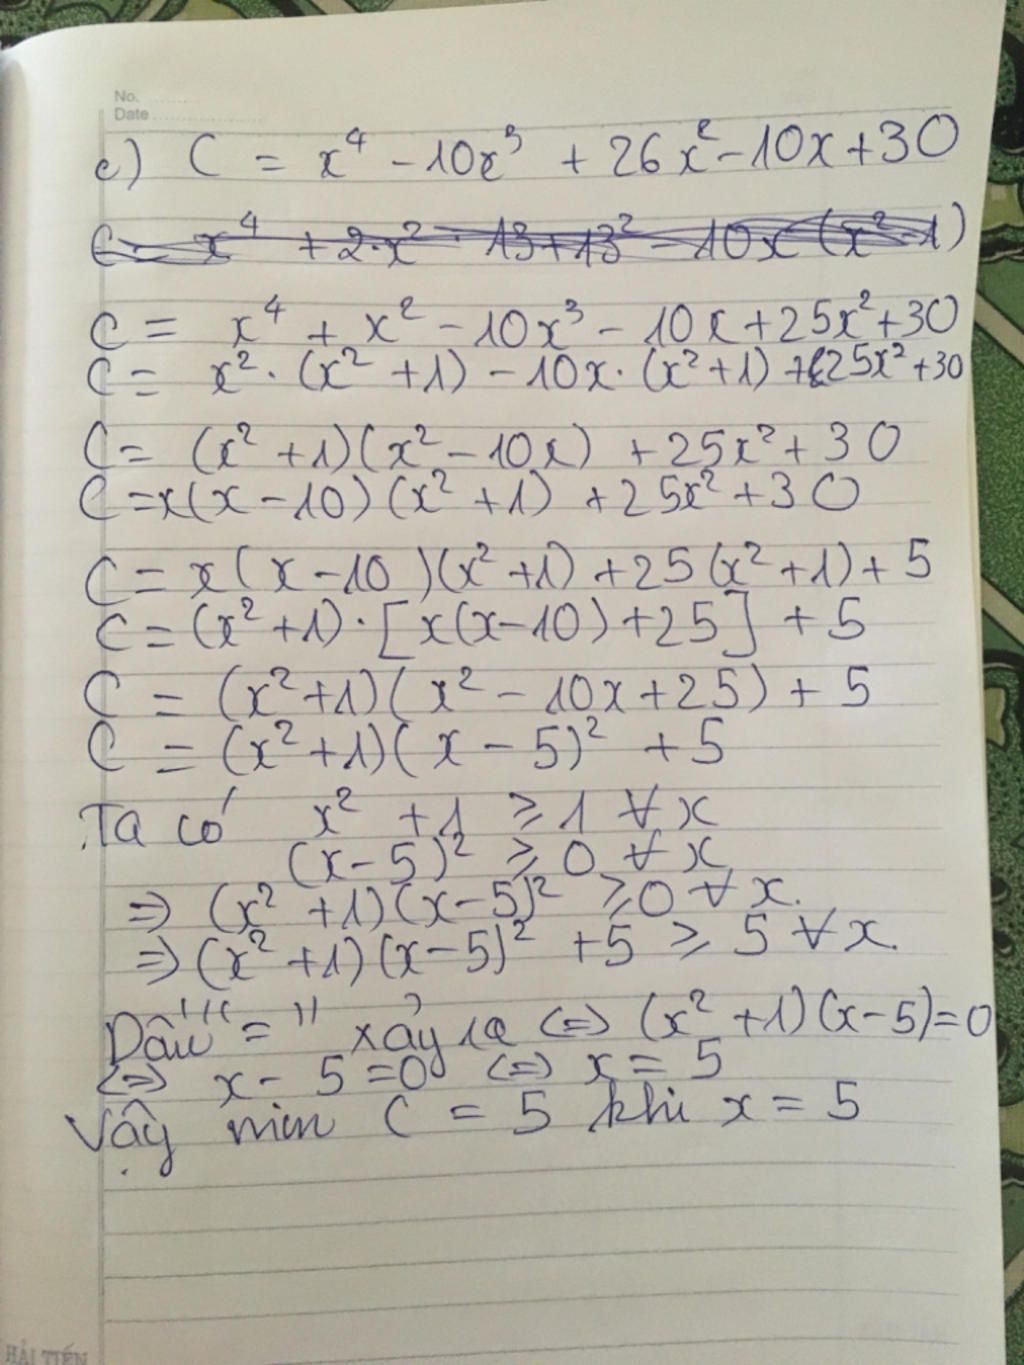 No.
Date
c) C = x⁴ - 10x³ + 26x² - 10x + 30
C = x⁴ + 2·x²·13 + 13² - 10x (x² - 1)
C = x⁴ + x² - 10x³ - 10x + 25x² + 30
C = x²·(x² + 1) - 10x·(x² + 1) + 25x² + 30
C = (x² + 1)(x² - 10x) + 25x² + 30
C = x(x - 10)(x² + 1) + 25x² + 30
C = x(x - 10)(x² + 1) + 25(x² + 1) + 5
C = (x² + 1)·[x(x - 10) + 25] + 5
C = (x² + 1)(x² - 10x + 25) + 5
C = (x² + 1)(x - 5)² + 5
Ta có x² + 1 ⩾ 1 ∀ x
(x - 5)² ⩾ 0 ∀ x
⇒ (x² + 1)(x - 5)² ⩾ 0 ∀ x.
⇒ (x² + 1)(x - 5)² + 5 ⩾ 5 ∀ x.
Dấu "=" xảy ra ⇔ (x² + 1)(x - 5) = 0
⇔ x - 5 = 0 ⇔ x = 5
Vậy min C = 5 khi x = 5
HẢI TIẾN